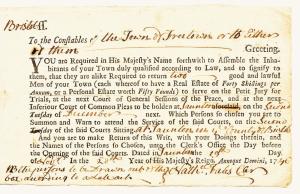 Bristol ss.
To the Constables of the Town of Taunton or to Either
of them Greeting.
YOU are Required in His Majesty's Name forthwith to Assemble the Inha-
bitants of your Town duly qualified according to Law, and to signify to
them, that they are alike Required to return two good and lawful
Men of your Town (each whereof to have a Real Estate of Forty Shillings per
Annum, or a Personal Estate worth Fifty Pounds) to serve on the Petit Jury for
Trials, at the next Court of General Sessions of the Peace, and at the next
Inferiour Court of Common Pleas to be holden at Taunton on the Second
Tuesday of December next: Which Persons so Chosen you are to
Summon and Warn to attend the Service of the said Courts, on the Second
Tuesday of the said Courts Sitting at Taunton in County of Bristol
And you are to make Return of this Writ, with your Doings therein, and
the Names of the Persons so Chosen, unto the Clerk's Office the Day
before the Opening of the said Courts. Dated in Taunton the
Day of in the 20th Year of His Majesty's Reign, Annoque Domini, 174
the persons to be Drawn out of the
according to